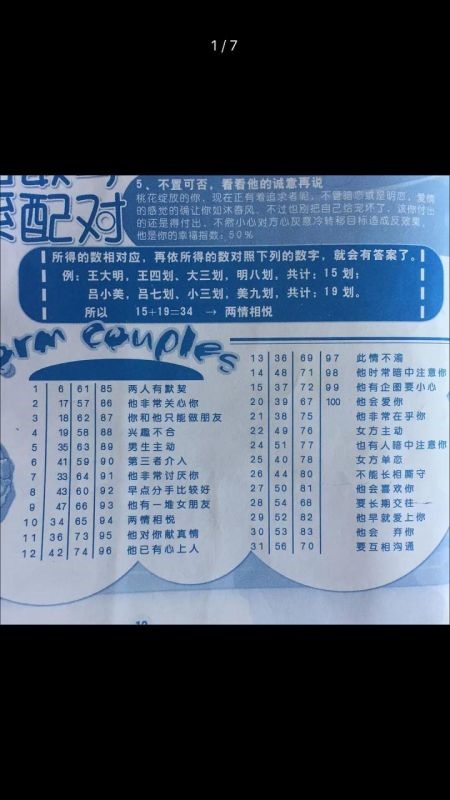 1 / 7
配对
5、不置可否，看看他的诚意再说
桃花绽放的你，现在正有着追求者呢，不管暗恋或是明恋，爱情
的感觉的确让你如沐春风。不过也别把自己给宠坏了，该你付出
的还是得付出，不然小心对方心灰意冷转移目标造成反效果。
他是你的幸福指数：50％
所得的数相对应，再依所得的数对照下列的数字，就会有答案了。
例：王大明，王四划、大三划，明八划，共计：15 划；
吕小美，吕七划、小三划，美九划，共计：19 划。
所以 15+19=34 → 两情相悦
orm couples
1 6 61 85 两人有默契
2 17 57 86 他非常关心你
3 18 62 87 你和他只能做朋友
4 19 58 88 兴趣不合
5 35 63 89 男生主动
6 41 59 90 第三者介入
7 33 64 91 他非常讨厌你
8 43 60 92 早点分手比较好
9 47 66 93 他有一堆女朋友
10 34 65 94 两情相悦
11 36 73 95 他对你献真情
12 42 74 96 他已有心上人
13 36 69 97 此情不渝
14 48 71 98 他时常暗中注意你
15 37 72 99 他有企图要小心
20 39 67 100 他会爱你
21 38 75 他非常在乎你
22 49 76 女方主动
24 51 77 也有人暗中注意你
25 40 78 女方单恋
26 44 80 不能长相厮守
27 50 81 他会喜欢你
28 54 68 要长期交往
29 52 82 他早就爱上你
30 53 83 他会 弃你
31 56 70 要互相沟通